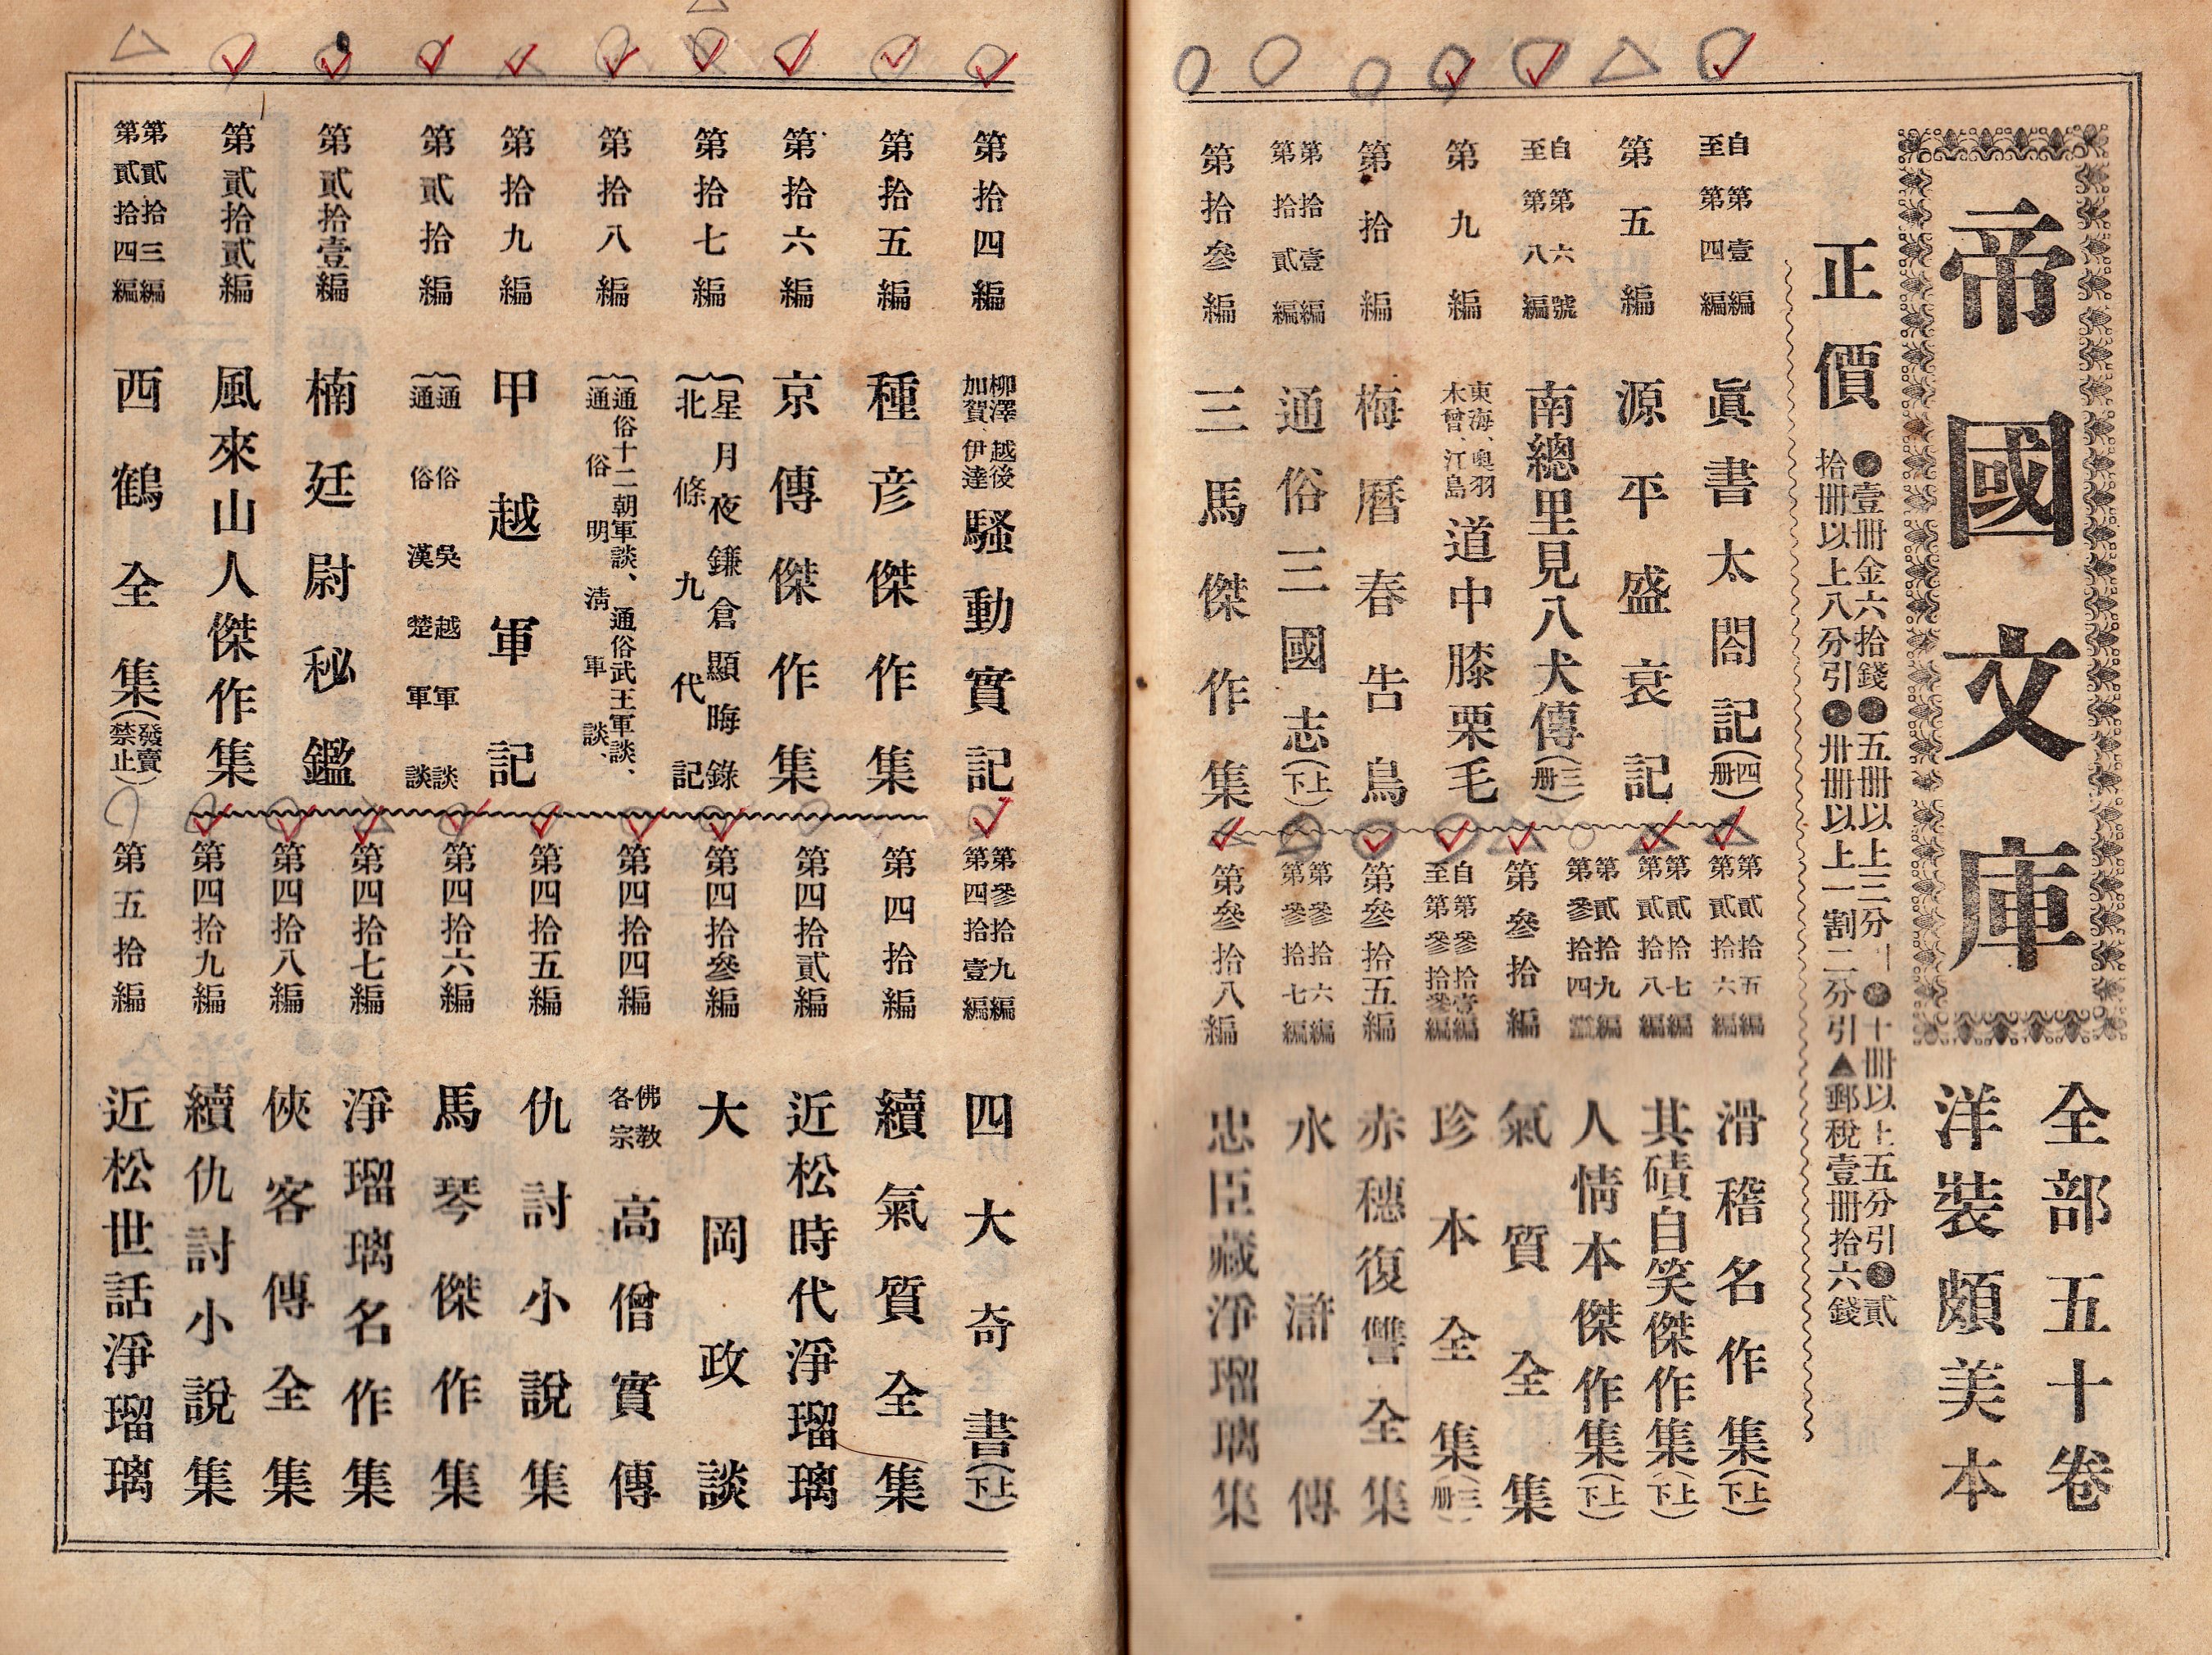 帝國文庫
全部五十卷
洋裝頗美本
正價
●壹冊金六拾錢●五冊以上三分引●十冊以上五分引●貳
拾冊以上八分引●卅冊以上一割二分引▲郵稅壹冊拾六錢
自第壹編
至第四編
眞書太閤記(四册)
第五編
源平盛衰記
自第六號
至第八編
南總里見八犬傳(三册)
第九編
東海、奥羽
木曾、江島
道中膝栗毛
第拾編
梅曆春告鳥
第拾壹編
第拾貳編
通俗三國志(上下)
第拾參編
三馬傑作集
第貳拾五編
第貳拾六編
滑稽名作集(上下)
第貳拾七編
第貳拾八編
其磧自笑傑作集(上下)
第貳拾九編
第參拾四編
人情本傑作集(上下)
第參拾編
氣質全集
自第參拾壹編
至第參拾參編
珍本全集(三册)
第參拾五編
赤穗復讐全集
第參拾六編
第參拾七編
水滸傳
第參拾八編
忠臣藏淨瑠璃集
第拾四編
柳澤、越後
加賀、伊達
騷動實記
第拾五編
種彦傑作集
第拾六編
京傳傑作集
第拾七編
星月夜鎌倉顯晦錄
北條九代記
第拾八編
通俗十二朝軍談、通俗武王軍談、
通俗明淸軍談、
第拾九編
甲越軍記
第貳拾編
通俗吳越軍談
通俗漢楚軍談
第貳拾壹編
楠廷尉秘鑑
第貳拾貳編
風來山人傑作集
第貳拾三編
第貳拾四編
西鶴全集(發賣禁止)
第參拾九編
第四拾壹編
四大奇書(上下)
第四拾編
續氣質全集
第四拾貳編
近松時代淨瑠璃
第四拾參編
大岡政談
第四拾四編
佛教
各宗
高僧實傳
第四拾五編
仇討小說集
第四拾六編
馬琴傑作集
第四拾七編
淨瑠璃名作集
第四拾八編
俠客傳全集
第四拾九編
續仇討小說集
第五拾編
近松世話淨瑠璃